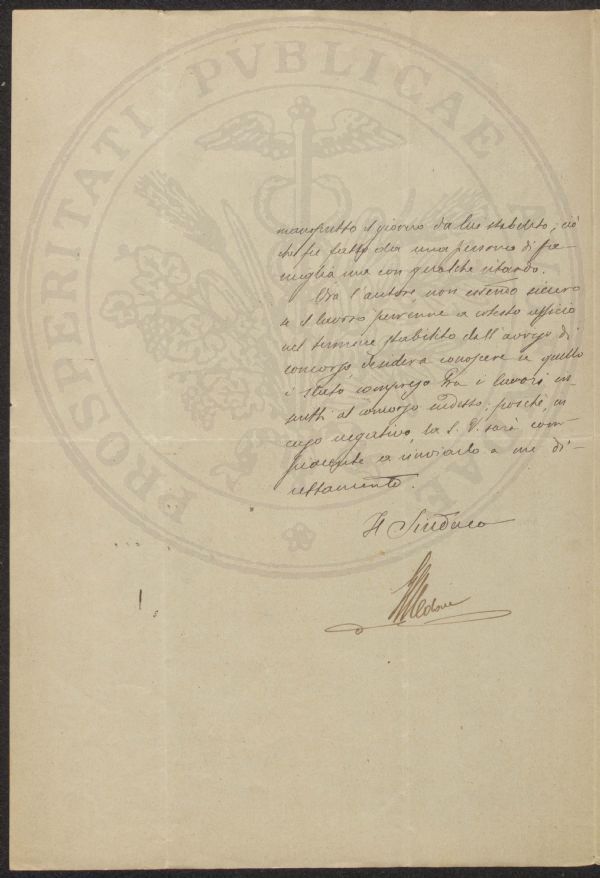 PROSPERITATI PVBLICAE
manoscritto il giorno da lui stabilito; ciò
che fu fatto da una persona di fa-
miglia ma con qualche ritardo.
Ora l'autore, non essendo sicuro
se il lavoro pervenne a cotesto ufficio
nel termine stabilito dall'avviso di
concorso desidera conoscere se quello
è stato compreso fra i lavori am
messi al concorso indetto; poichè, in
caso negativo, la S. V. sarà com-
piacente a rinviarlo a me di-
rettamente.
Il Sindaco